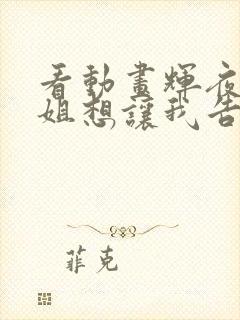 看動畫輝夜
姐想讓我告
菲克